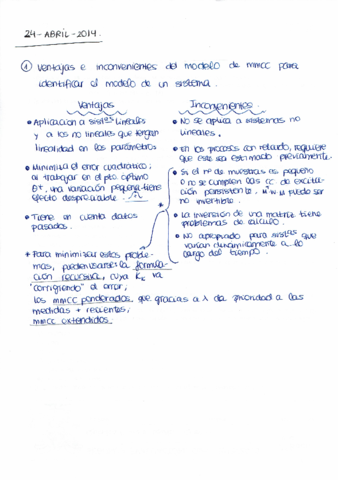 24-ABRIL-2014.
① Ventajas e inconvenientes del modelo de MMCC para
identificar el modelo de un sistema.
Ventajas
• Aplicación a sistes lineales
y a los no lineales que tengan
linealidad en los parámetros
• Minimiza el error cuadrático;
al trabajar en el pto óptimo
θ*, una variación pequeña tiene
efecto despreciable.
• Tiene en cuenta datos
pasados.
* Para minimizar estos proble-
mas, podemos usar la formula-
ción recursiva, cuya Kk va
"corrigiendo" el error;
los MMCC ponderados, que gracias a λ da prioridad a las
medidas + recientes;
MMCC extendidos.
Inconvenientes.
• No se aplica a sistemas no
lineales.
• En los procesos con retardo, requiere
que éste sea estimado previamente.
• Si el nº de muestras es pequeño
o no se cumplen las CC de excita-
ción persistente, MᵀWM puede ser
no invertible.
• La inversión de una matriz tiene
problemas de cálculo.
• No apropiado para sistes que
varían dinámicamente a lo
largo del tiempo.